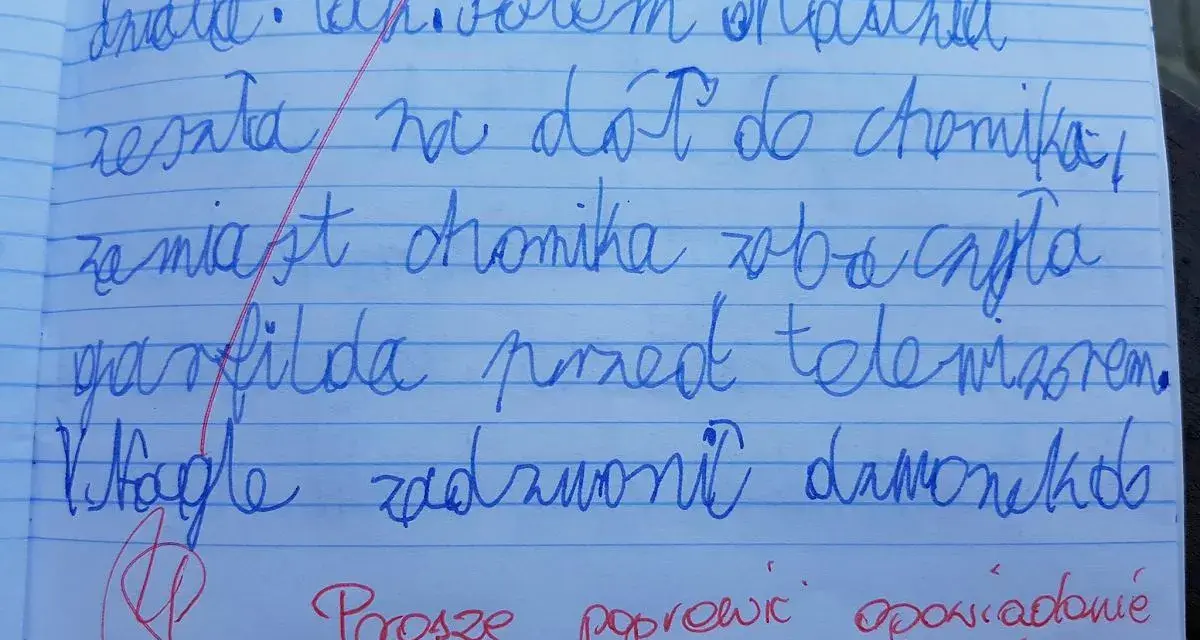 zeszła na dół do chomika,
zamiast chomika zobaczyła
garfilda przed telewizorem.
V. Nagle zadzwonił dzwonek do
Proszę poprawić opowiadanie